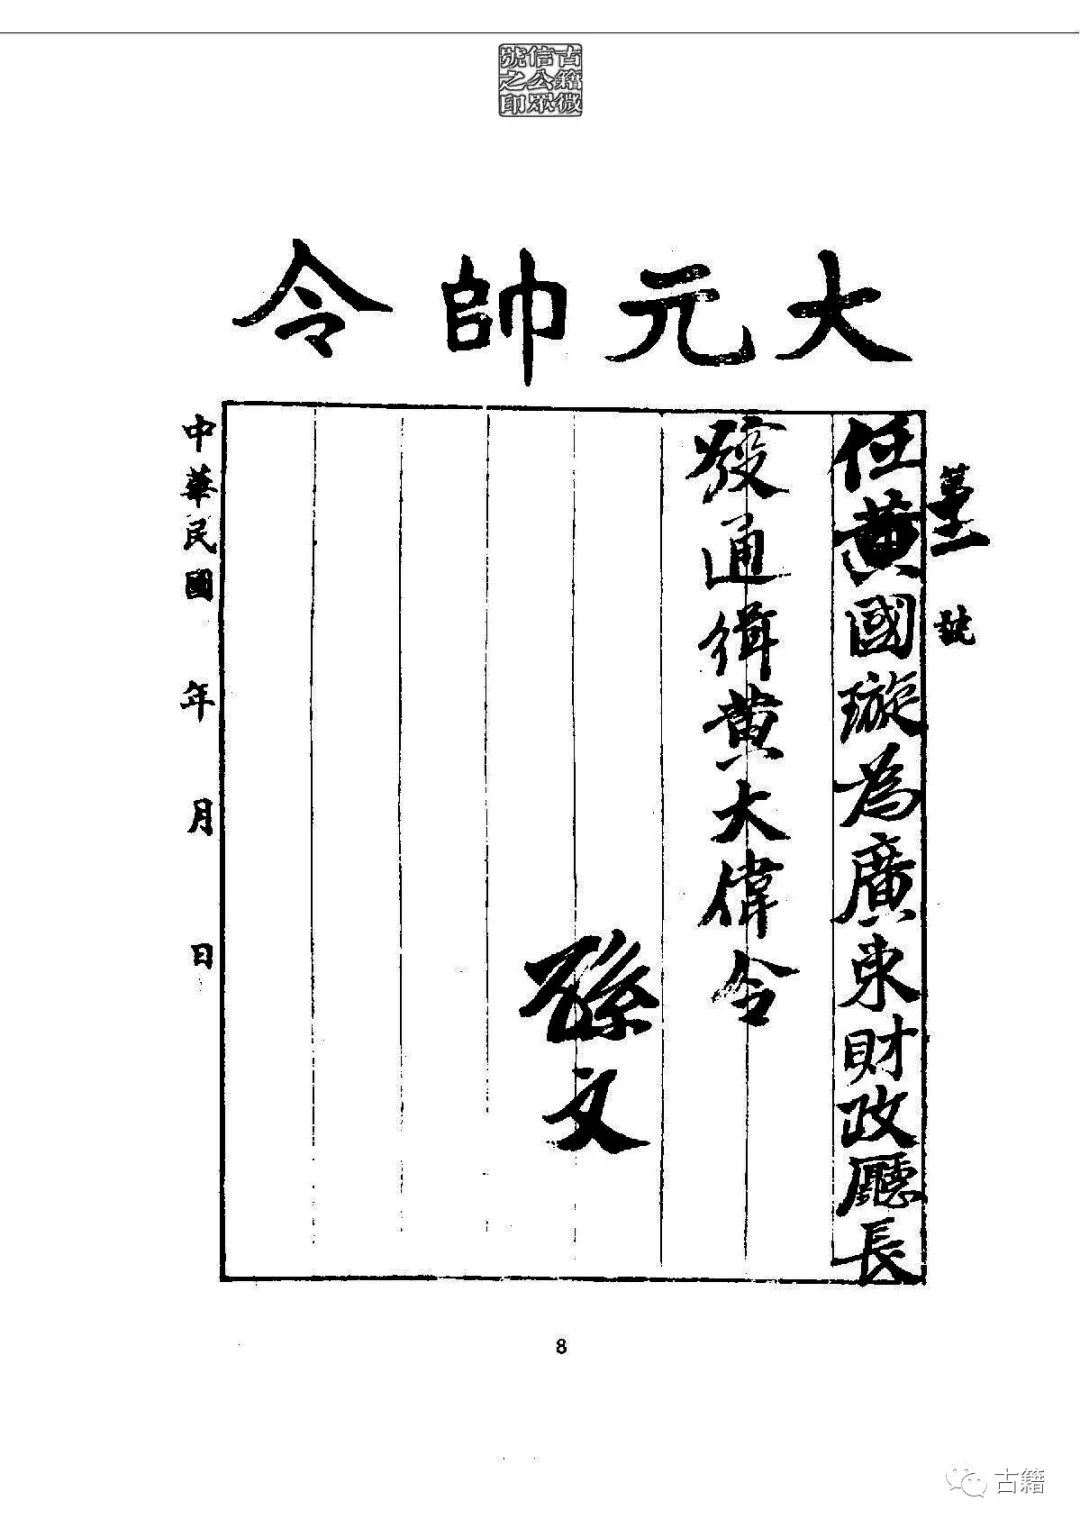 古籍微
信公眾
號之印
大元帥令
第十一號
任黃國璇為廣東財政廳長
發通緝黃大偉令
孫文
中華民國 年 月 日
8
古籍